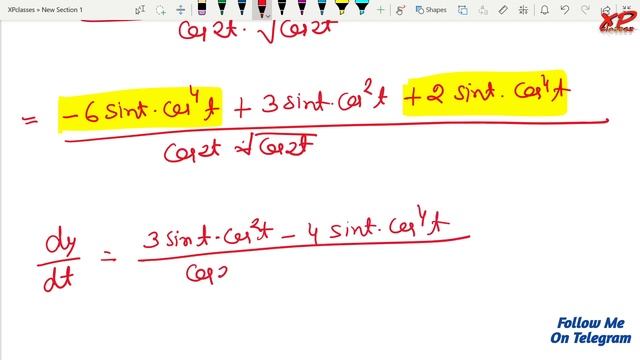 XPclasses » New Section 1
Shapes
XP
CLASSES
cos2t · √cos2t
= - 6 sint · cos⁴t + 3 sint · cos²t + 2 sint · cos⁴t
cos2t · √cos2t
dy/dt = 3 sint · cos²t - 4 sint · cos⁴t
cos2
Follow Me
On Telegram